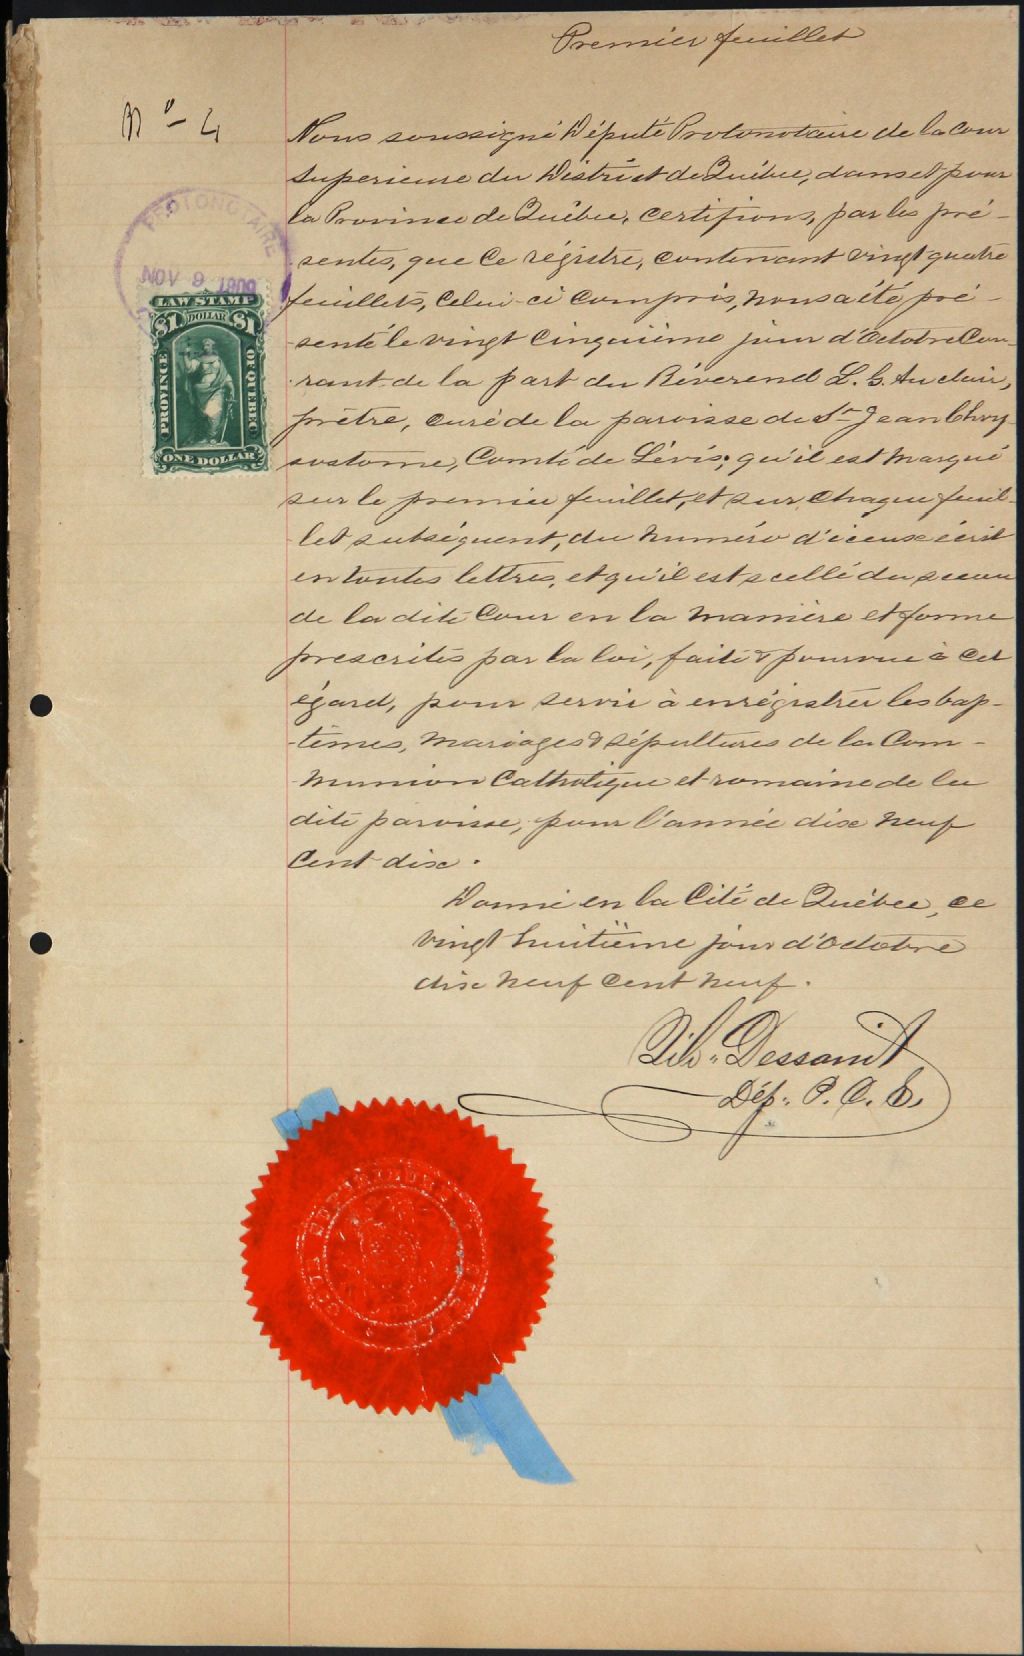 Premier feuillet
No- 4
Nous soussigné Député Protonotaire de la Cour
Superieure du District de Québec, dans et pour
la Province de Québec, certifions, par les pré-
sentes, que ce régistre, contenant vingt quatre
feuillets, celui-ci compris, nous a été pré-
-senté le vingt cinquième jour d'Octobre Cou-
-rant de la part du Réverend L. G. Auclair,
prêtre, curé de la paroisse de St Jean Chry-
sostome, Comté de Lévis; qu'il est marqué
sur le premier feuillet, et sur chaque feuil-
let subséquent, du numéro d'iceux écrit
en toutes lettres, et qu'il est scellé du sceau
de la dite Cour en la manière et forme
prescrites par la loi, faite & pourvue à cet
égard, pour servir à enrégistrer les bap-
-têmes, mariages & sépultures de la Com-
-munion Catholique et romaine de la
dite paroisse, pour l'année dix neuf
Cent dix.
Donné en la Cité de Québec, ce
vingt huitième jour d'Octobre
dix neuf cent neuf.
Dép. P. C. S.
PROTONOTAIRE
NOV 9 1909
LAW STAMP
$1 DOLLAR $1
PROVINCE OF QUEBEC
ONE DOLLAR